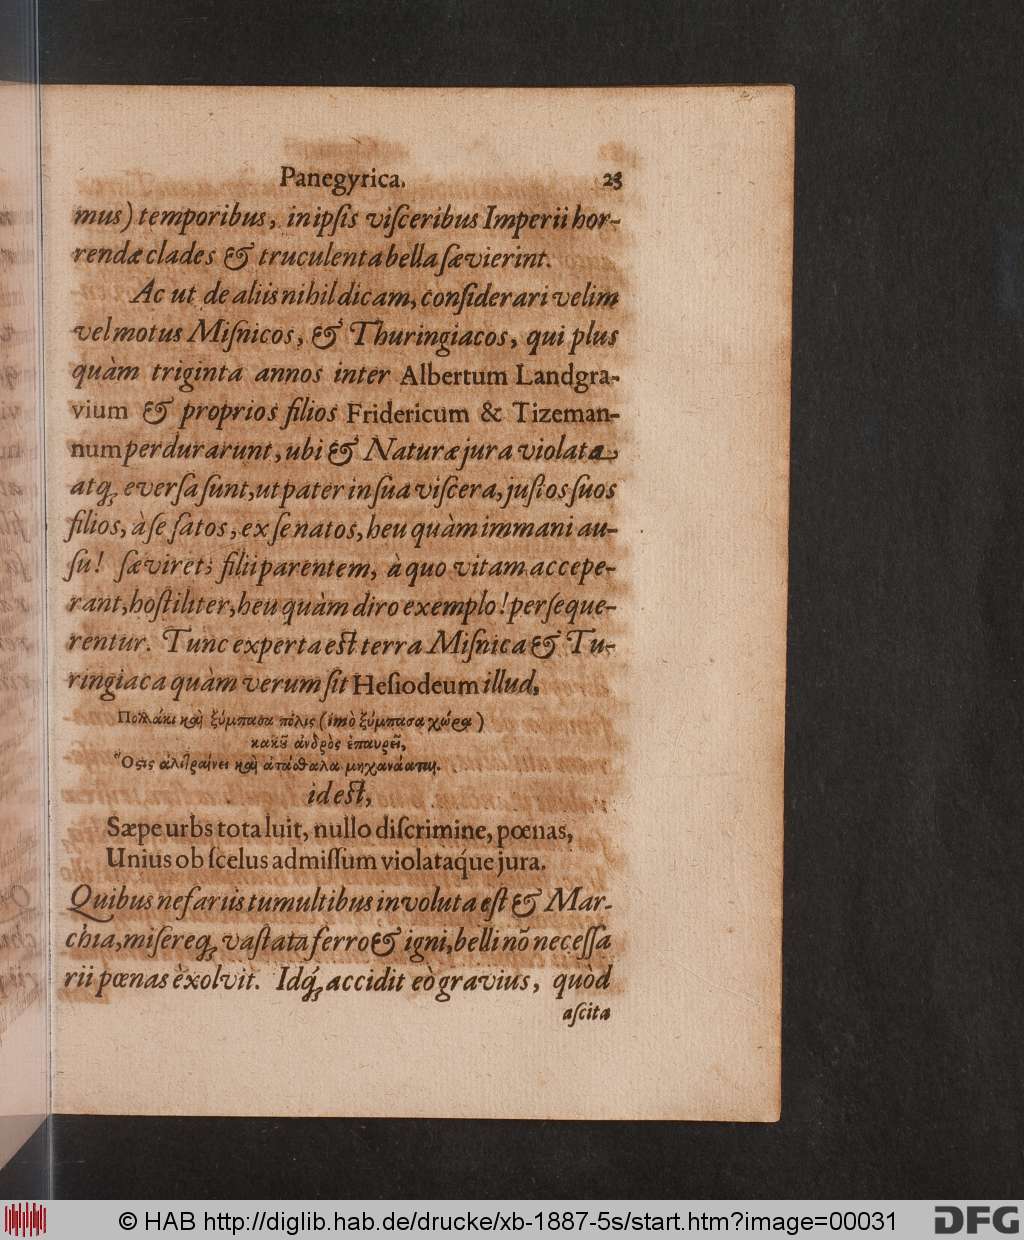 Panegyrica. 23
mus) temporibus, in ipſis viſceribus Imperii hor-
rendæ clades & truculenta bella ſævierint.
Ac ut de aliis nihil dicam, conſiderari velim
vel motus Miſnicos, & Thuringiacos, qui plus
quàm triginta annos inter Albertum Landgra-
vium & proprios filios Fridericum & Tizeman-
num perdurarunt, ubi & Naturæ jura violata
atq; everſa ſunt, ut pater in ſua viſcera, juſtos ſuos
filios, à ſe ſatos, ex ſe natos, heu quàm immani au-
ſu! ſæviret; filii parentem, à quo vitam accepe-
rant, hoſtiliter, heu quàm diro exemplo! perſeque-
rentur. Tunc experta eſt terra Miſnica & Tu-
ringiaca quàm verum ſit Heſiodeum illud,
Πολλάκι καὶ ξύμπασα πόλις (ἰμὸ ξύμπασα χώρα)
κακοῦ ἀνδρὸς ἐπαυρεῖ,
Ὅστις ἀλιτραίνει καὶ ἀτάσθαλα μηχανάαται.
id eſt,
Sæpe urbs tota luit, nullo diſcrimine, pœnas,
Unius ob ſcelus admiſſum violataq́ue jura.
Quibus nefariis tumultibus involuta eſt & Mar-
chia, miſereq; vaſtata ferro & igni, belli nõ neceſſa
rii pœnas exolvit. Idq́; accidit eò gravius, quòd
aſcita
© HAB http://diglib.hab.de/drucke/xb-1887-5s/start.htm?image=00031
DFG